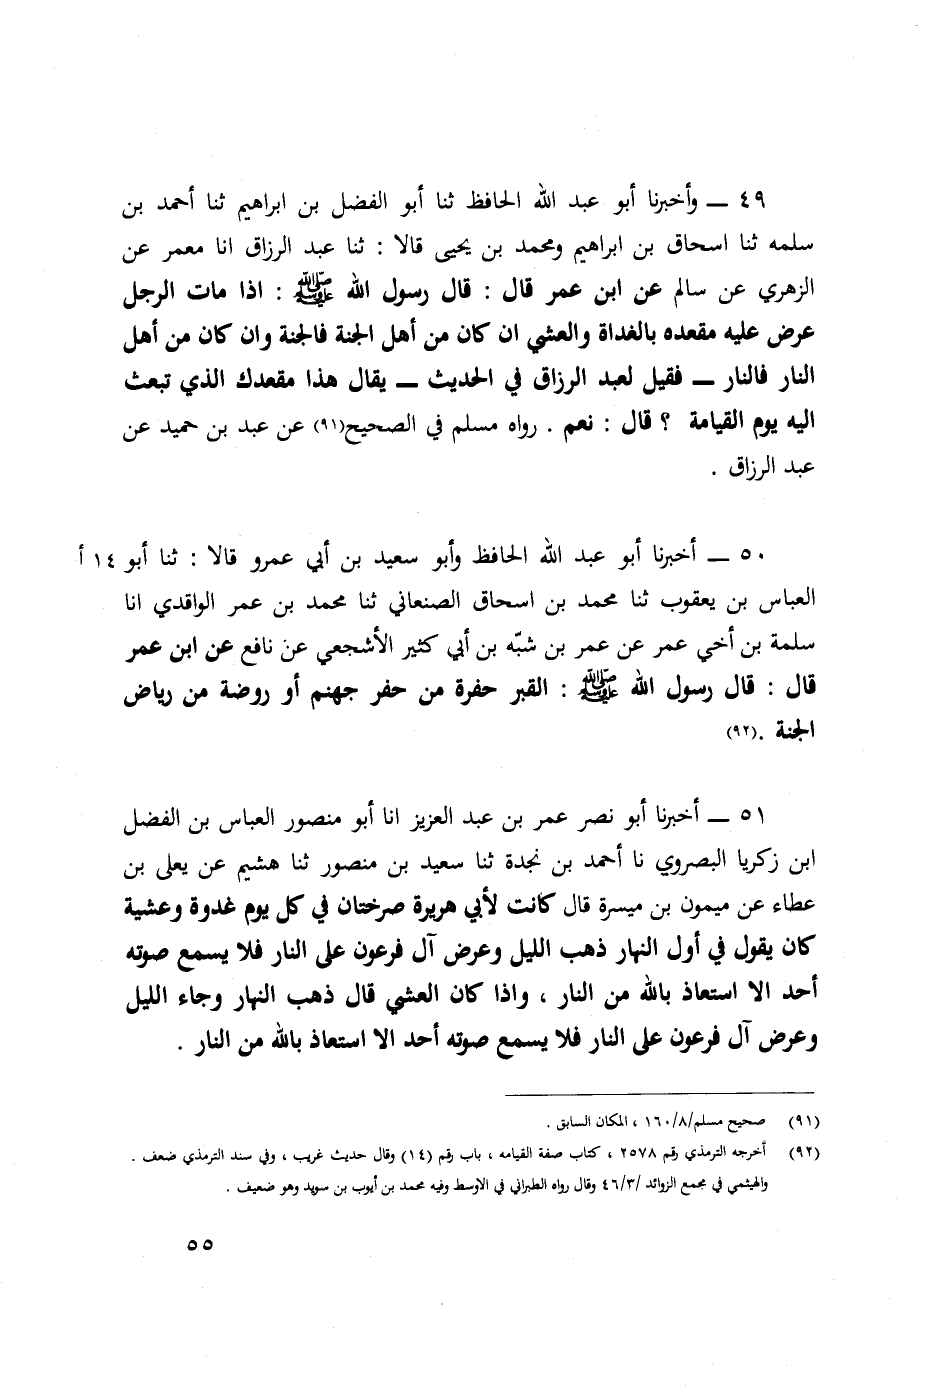 ٤٩ ــ وأخبرنا أبو عبد الله الحافظ ثنا أبو الفضل بن ابراهيم ثنا أحمد بن
سلمه ثنا اسحاق بن ابراهيم ومحمد بن يحيى قالا : ثنا عبد الرزاق انا معمر عن
الزهري عن سالم عن ابن عمر قال : قال رسول الله ﷺ : اذا مات الرجل
عرض عليه مقعده بالغداة والعشي ان كان من أهل الجنة فالجنة وان كان من أهل
النار فالنار ــ فقيل لعبد الرزاق في الحديث ــ يقال هذا مقعدك الذي تبعث
اليه يوم القيامة ؟ قال : نعم . رواه مسلم في الصحيح(٩١) عن عبد بن حميد عن
عبد الرزاق .
٥٠ ــ أخبرنا أبو عبد الله الحافظ وأبو سعيد بن أبي عمرو قالا : ثنا أبو ١٤ أ
العباس بن يعقوب ثنا محمد بن اسحاق الصنعاني ثنا محمد بن عمر الواقدي انا
سلمة بن أخي عمر عن عمر بن شبّه بن أبي كثير الأشجعي عن نافع عن ابن عمر
قال : قال رسول الله ﷺ : القبر حفرة من حفر جهنم أو روضة من رياض
الجنة .(٩٢)
٥١ ــ أخبرنا أبو نصر عمر بن عبد العزيز انا أبو منصور العباس بن الفضل
ابن زكريا البصروي نا أحمد بن نجدة ثنا سعيد بن منصور ثنا هشيم عن يعلى بن
عطاء عن ميمون بن ميسرة قال كانت لأبي هريرة صرختان في كل يوم غدوة وعشية
كان يقول في أول النهار ذهب الليل وعرض آل فرعون على النار فلا يسمع صوته
أحد الا استعاذ بالله من النار ، واذا كان العشي قال ذهب النهار وجاء الليل
وعرض آل فرعون على النار فلا يسمع صوته أحد الا استعاذ بالله من النار .
(٩١) صحيح مسلم/١٦٠/٨ ، المكان السابق .
(٩٢) أخرجه الترمذي رقم ٢٥٧٨ ، كتاب صفة القيامه ، باب رقم (١٤) وقال حديث غريب ، وفي سند الترمذي ضعف .
والهيثمي في مجمع الزوائد /٤٦/٣ وقال رواه الطبراني في الاوسط وفيه محمد بن أيوب بن سويد وهو ضعيف .
٥٥